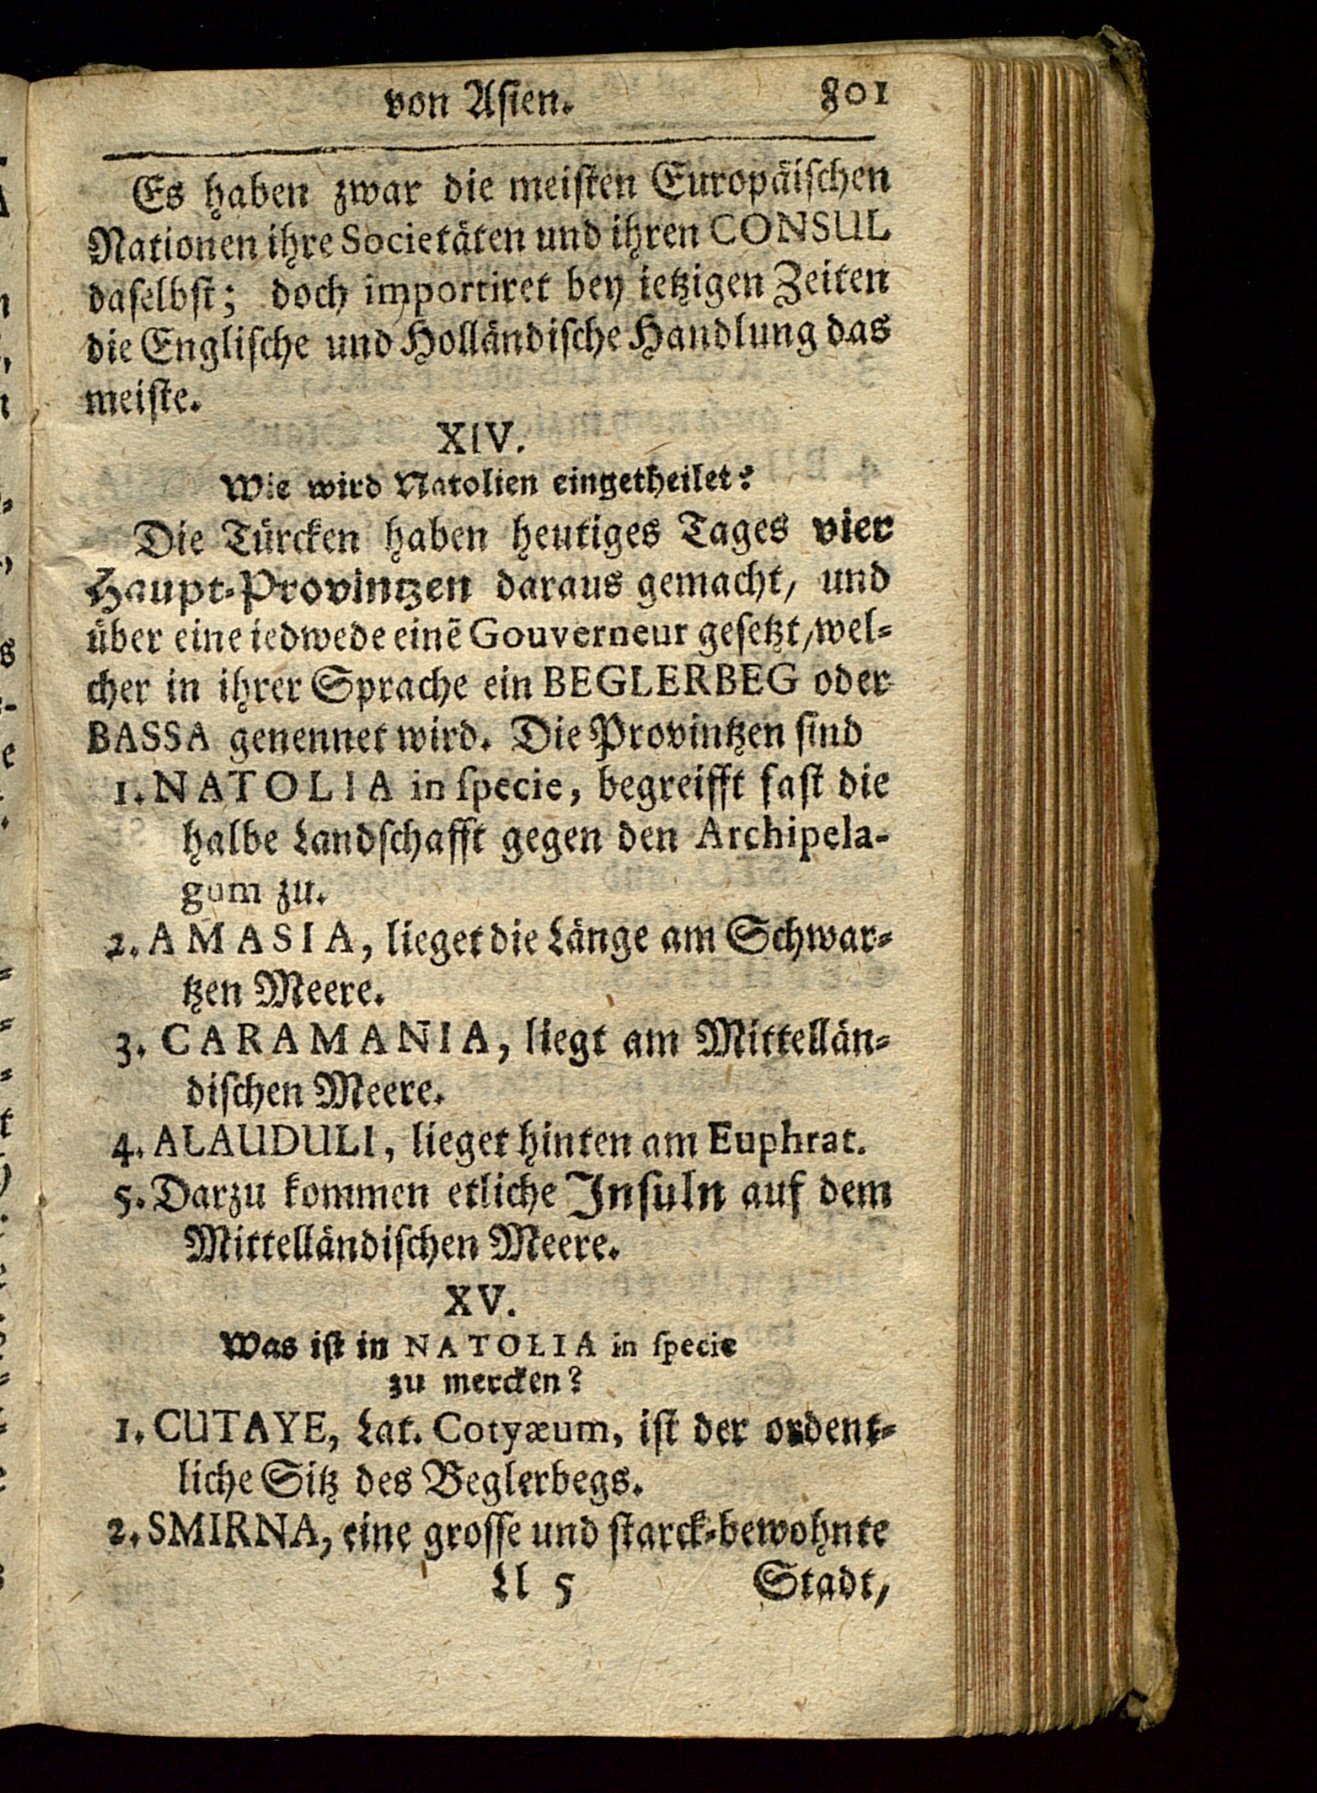 von Asien. 801
Es haben zwar die meisten Europäischen
Nationen ihre Societäten und ihren CONSUL
daselbst; doch importiret bey ietzigen Zeiten
die Englische und Holländische Handlung das
meiste.
XIV.
Wie wird Natolien eingetheilet?
Die Türcken haben heutiges Tages vier
Haupt-Provintzen daraus gemacht/ und
über eine iedwede einē Gouverneur gesetzt/wel-
cher in ihrer Sprache ein BEGLERBEG oder
BASSA genennet wird. Die Provintzen sind
1. NATOLIA in specie, begreifft fast die
halbe Landschafft gegen den Archipela-
gum zu.
2. AMASIA, lieget die Länge am Schwar-
tzen Meere.
3. CARAMANIA, liegt am Mittellän-
dischen Meere.
4. ALAUDULI, lieget hinten am Euphrat.
5. Darzu kommen etliche Insuln auf dem
Mittelländischen Meere.
XV.
Was ist in NATOLIA in specie
zu mercken?
1. CUTAYE, Lat. Cotyæum, ist der ordent-
liche Sitz des Beglerbegs.
2. SMIRNA, eine grosse und starck-bewohnte
Ll 5 Stadt/